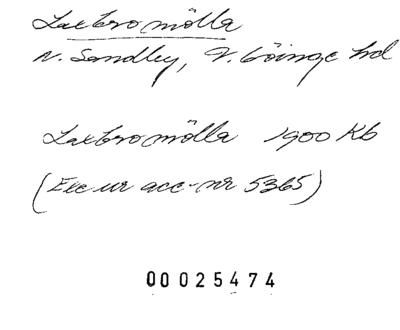 Laxbromölla
N. Sandby, V. Göinge hd
Laxbromölla 1900 Kb
(Exc ur acc-nr 5365)
00025474